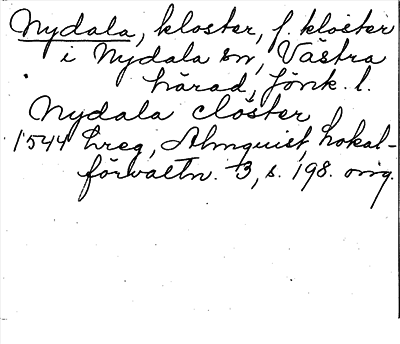 Nydala, kloster, f. kloster
i Nydala sn, Västra
härad, Jönk. l.
Nydala closter
1544 Lreg, Almquist, Lokal-
förvaltn. 3, s. 198. orig.